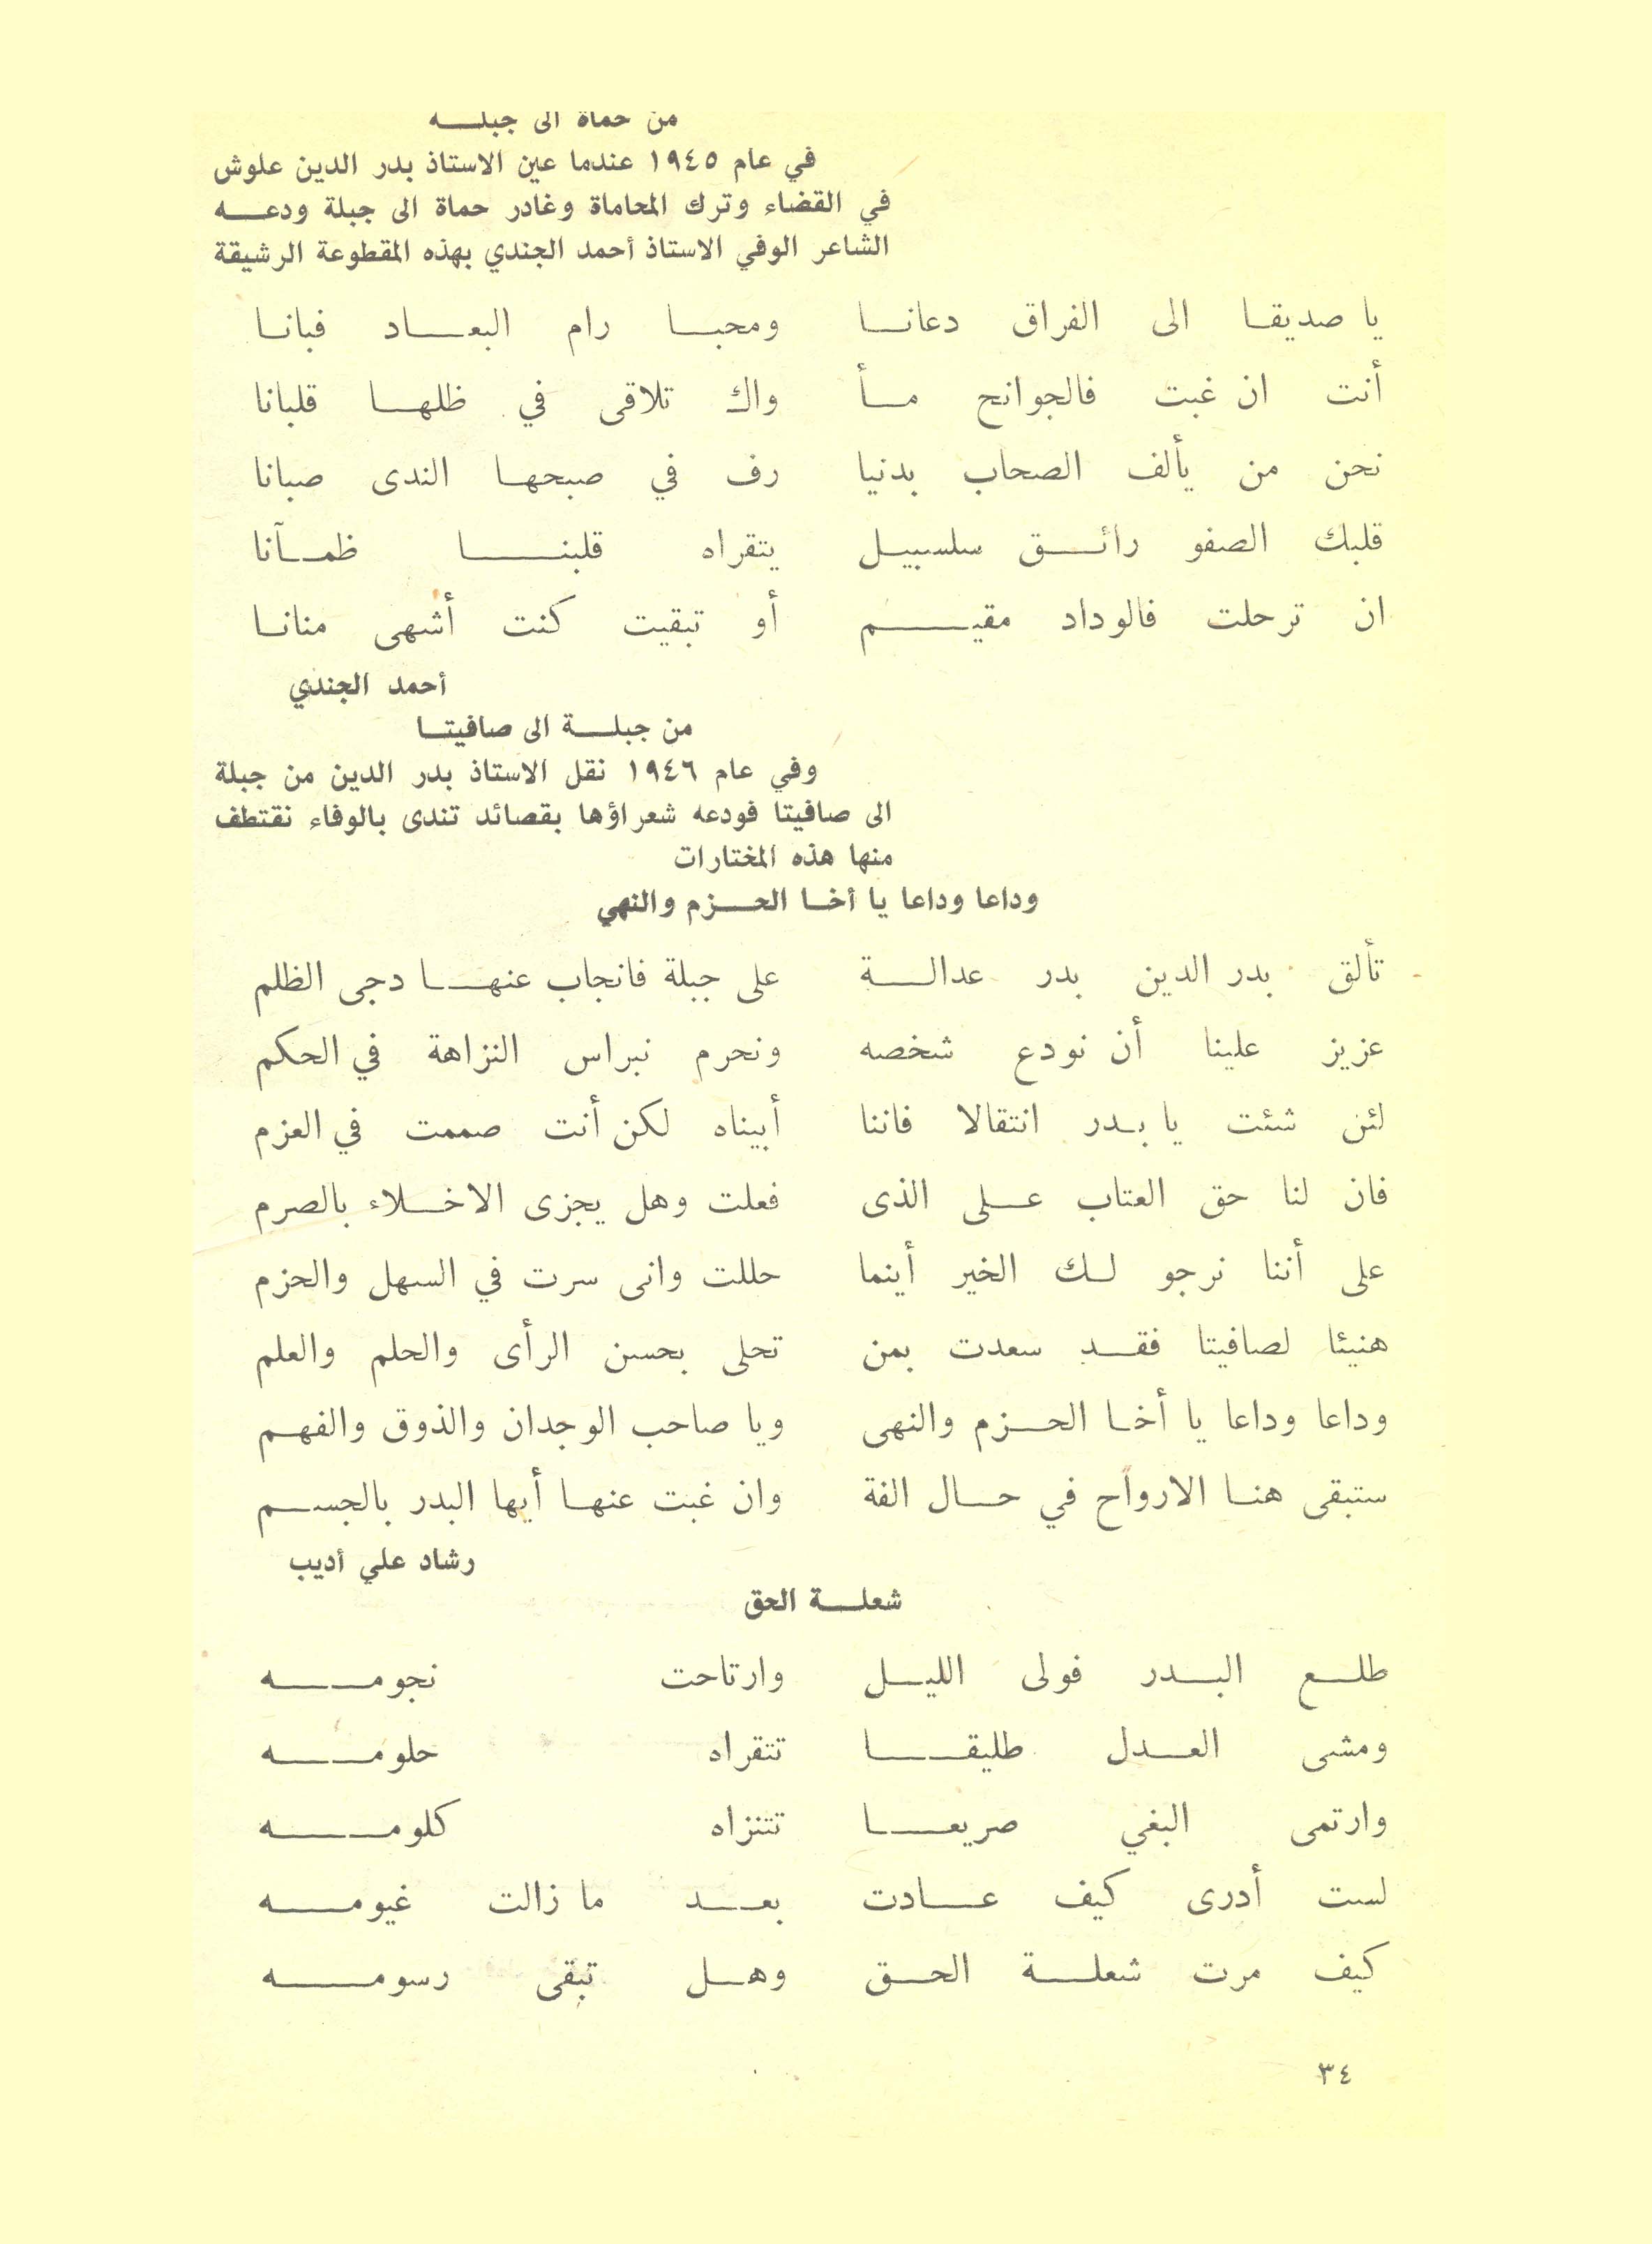 من حماة الى جبلـــه
في عام ١٩٤٥ عندما عين الاستاذ بدر الدين علوش
في القضاء وترك المحاماة وغادر حماة الى جبلة ودعـــه
الشاعر الوفي الاستاذ أحمد الجندي بهذه المقطوعة الرشيقة
يا صديقـا الى الفراق دعانـــا ومحبـــا رام البعـــاد فبانـا
أنت ان غبت فالجوانح مـــأ واك تلاقى في ظلهـا قلبانا
نحن من يألف الصحاب بدنيا رف في صبحهـا الندى صبانا
قلبك الصفو رائـــق سلسبيـل يتقراه قلبنـــا ظمــآنا
ان ترحلت فالوداد مقيـــم أو تبقيت كنت أشهى منانـا
أحمد الجندي
من جبلـــة الى صافيتـــا
وفي عام ١٩٤٦ نقل الاستاذ بدر الدين من جبلة
الى صافيتا فودعه شعراؤها بقصائد تندى بالوفاء نقتطف
منها هذه المختارات
وداعا وداعا يا أخـا الحـــزم والنهي
تألق بدر الدين بدر عدالـــة على جبلة فانجاب عنهـــا دجى الظلم
عزيز علينا أن نودع شخصه ونحرم نبراس النزاهة في الحكم
لئن شئت يا بـدر انتقالا فاننا أبيناه لكن أنت صممت في العزم
فان لنا حق العتاب عـــلى الذى فعلت وهل يجزى الاخـــلاء بالصرم
على أننا نرجو لـك الخير أينما حللت وانى سرت في السهل والحزم
هنيئا لصافيتا فقـــد سعدت بمن تحلى بحسن الرأى والحلم والعلم
وداعا وداعا يا أخـا الحـــزم والنهى ويا صاحب الوجدان والذوق والفهـم
ستبقى هنـا الارواح في حـــال الفة وان غبت عنهـا أيها البدر بالجســـم
رشاد علي أديب
شعلـــة الحق
طلـــع البـــدر فولى الليـــل وارتاحت نجومـــه
ومشى العـــدل طليقـــا تتقراه حلومـــه
وارتمى البغي صريعـــا تتنزاه كلومـــه
لست أدرى كيف عـــادت بعـــد ما زالت غيومـــه
كيف مرت شعلـــة الحـــق وهـــل تبقى رسومـــه
٣٤